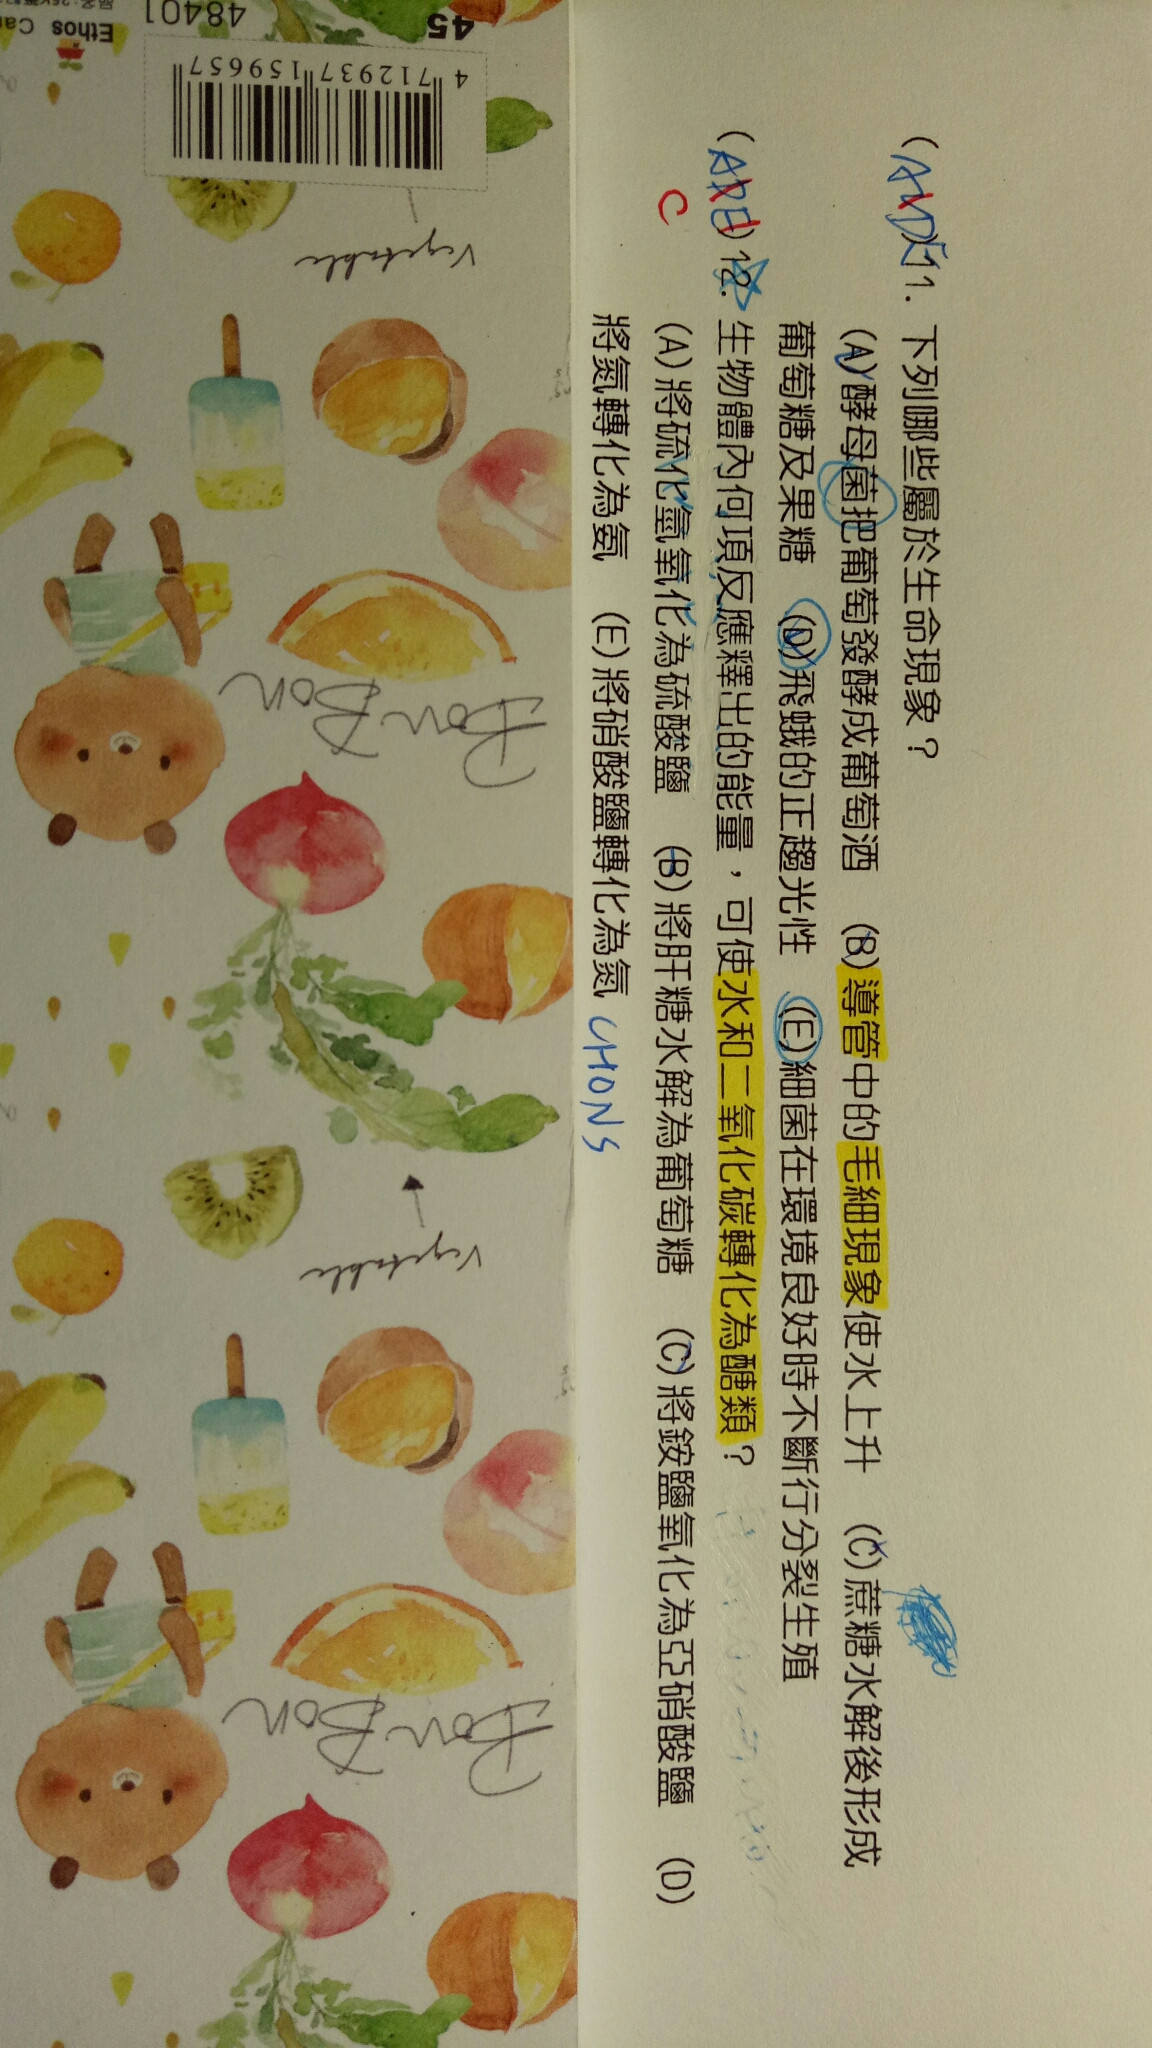 (ADE)11. 下列哪些屬於生命現象？
(A)酵母菌把葡萄發酵成葡萄酒 (B)導管中的毛細現象使水上升 (C)蔗糖水解後形成
葡萄糖及果糖 (D)飛蛾的正趨光性 (E)細菌在環境良好時不斷行分裂生殖
(ADE)12. 生物體內何項反應釋出的能量，可使水和二氧化碳轉化為醣類？
C
(A)將硫化氫氧化為硫酸鹽 (B)將肝糖水解為葡萄糖 (C)將銨鹽氧化為亞硝酸鹽 (D)
將氮轉化為氨 (E)將硝酸鹽轉化為氮 CHONS
45
48401
Ethos
4 712937 159657
Vegetable
Bon Bon
Vegetable
Bon Bon